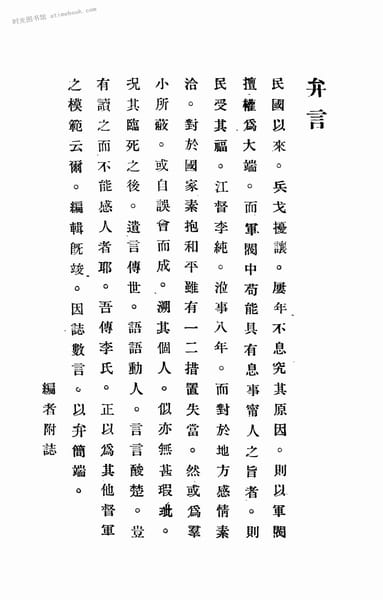 时光图书馆 atimebook.com
弁言
民國以來。兵戈擾讓。屢年不息究其原因。則以軍閥
擅權爲大端。而軍閥中苟能具有息事甯人之旨者。則
民受其福。江督李純。涖事八年。而對於地方感情素
洽。對於國家素抱和平雖有一二措置失當。然或爲羣
小所蔽。或自誤會而成。溯其個人。似亦無甚瑕玼。
况其臨死之後。遺言傳世。語語動人。言言酸楚。豈
有讀之而不能感人者耶。吾傳李氏。正以爲其他督軍
之模範云爾。編輯旣竣。因誌數言。以弁簡端。
編者附誌